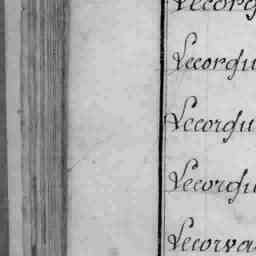 Lecorgu
Lecorgu
Lecorgu
Lecorgu
Lecorva